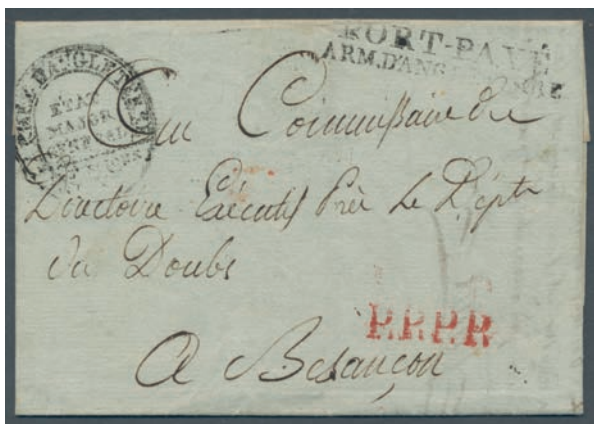 PORT-PAYÉ
ARM. D'ANGLETERRE
ARMÉE D'ANGLETERRE
ETAT
MAJOR
GENERAL
Au Commissaire du
Directoire Exécutif Près Le Dépt
du Doubs
P.P.P.P.
A Besançon